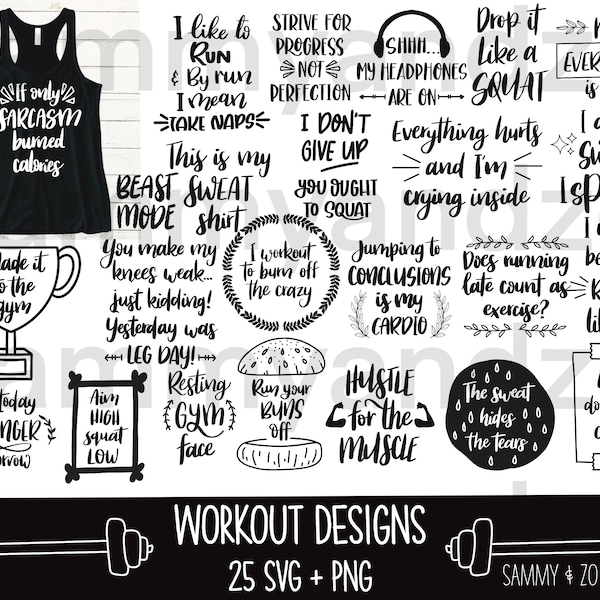 If only
SARCASM
burned
calories
I like to
RUN
& By run
I mean
TAKE NAPS
STRIVE FOR
PROGRESS
NOT
PERFECTION
SHHH...
MY HEADPHONES
ARE ON
Drop it
Like a
SQUAT
EVER
is
This is my
SWEAT
shirt
BEAST
MODE
I DON'T
GIVE UP
YOU OUGHT
TO SQUAT
Everything hurts
and I'm
crying inside
Made it
to the
gym
You make my
knees weak...
just kidding!
Yesterday was
LEG DAY!
I workout
to burn off
the crazy
Jumping to
CONCLUSIONS
is my
CARDIO
Does running
late count as
exercise?
today
Aim
HIGH
squat
LOW
Resting
GYM
face
Run your
BUNS
off
HUSTLE
for the
MUSCLE
The sweat
hides
the tears
WORKOUT DESIGNS
25 SVG + PNG
SAMMY & ZO
sammyandz